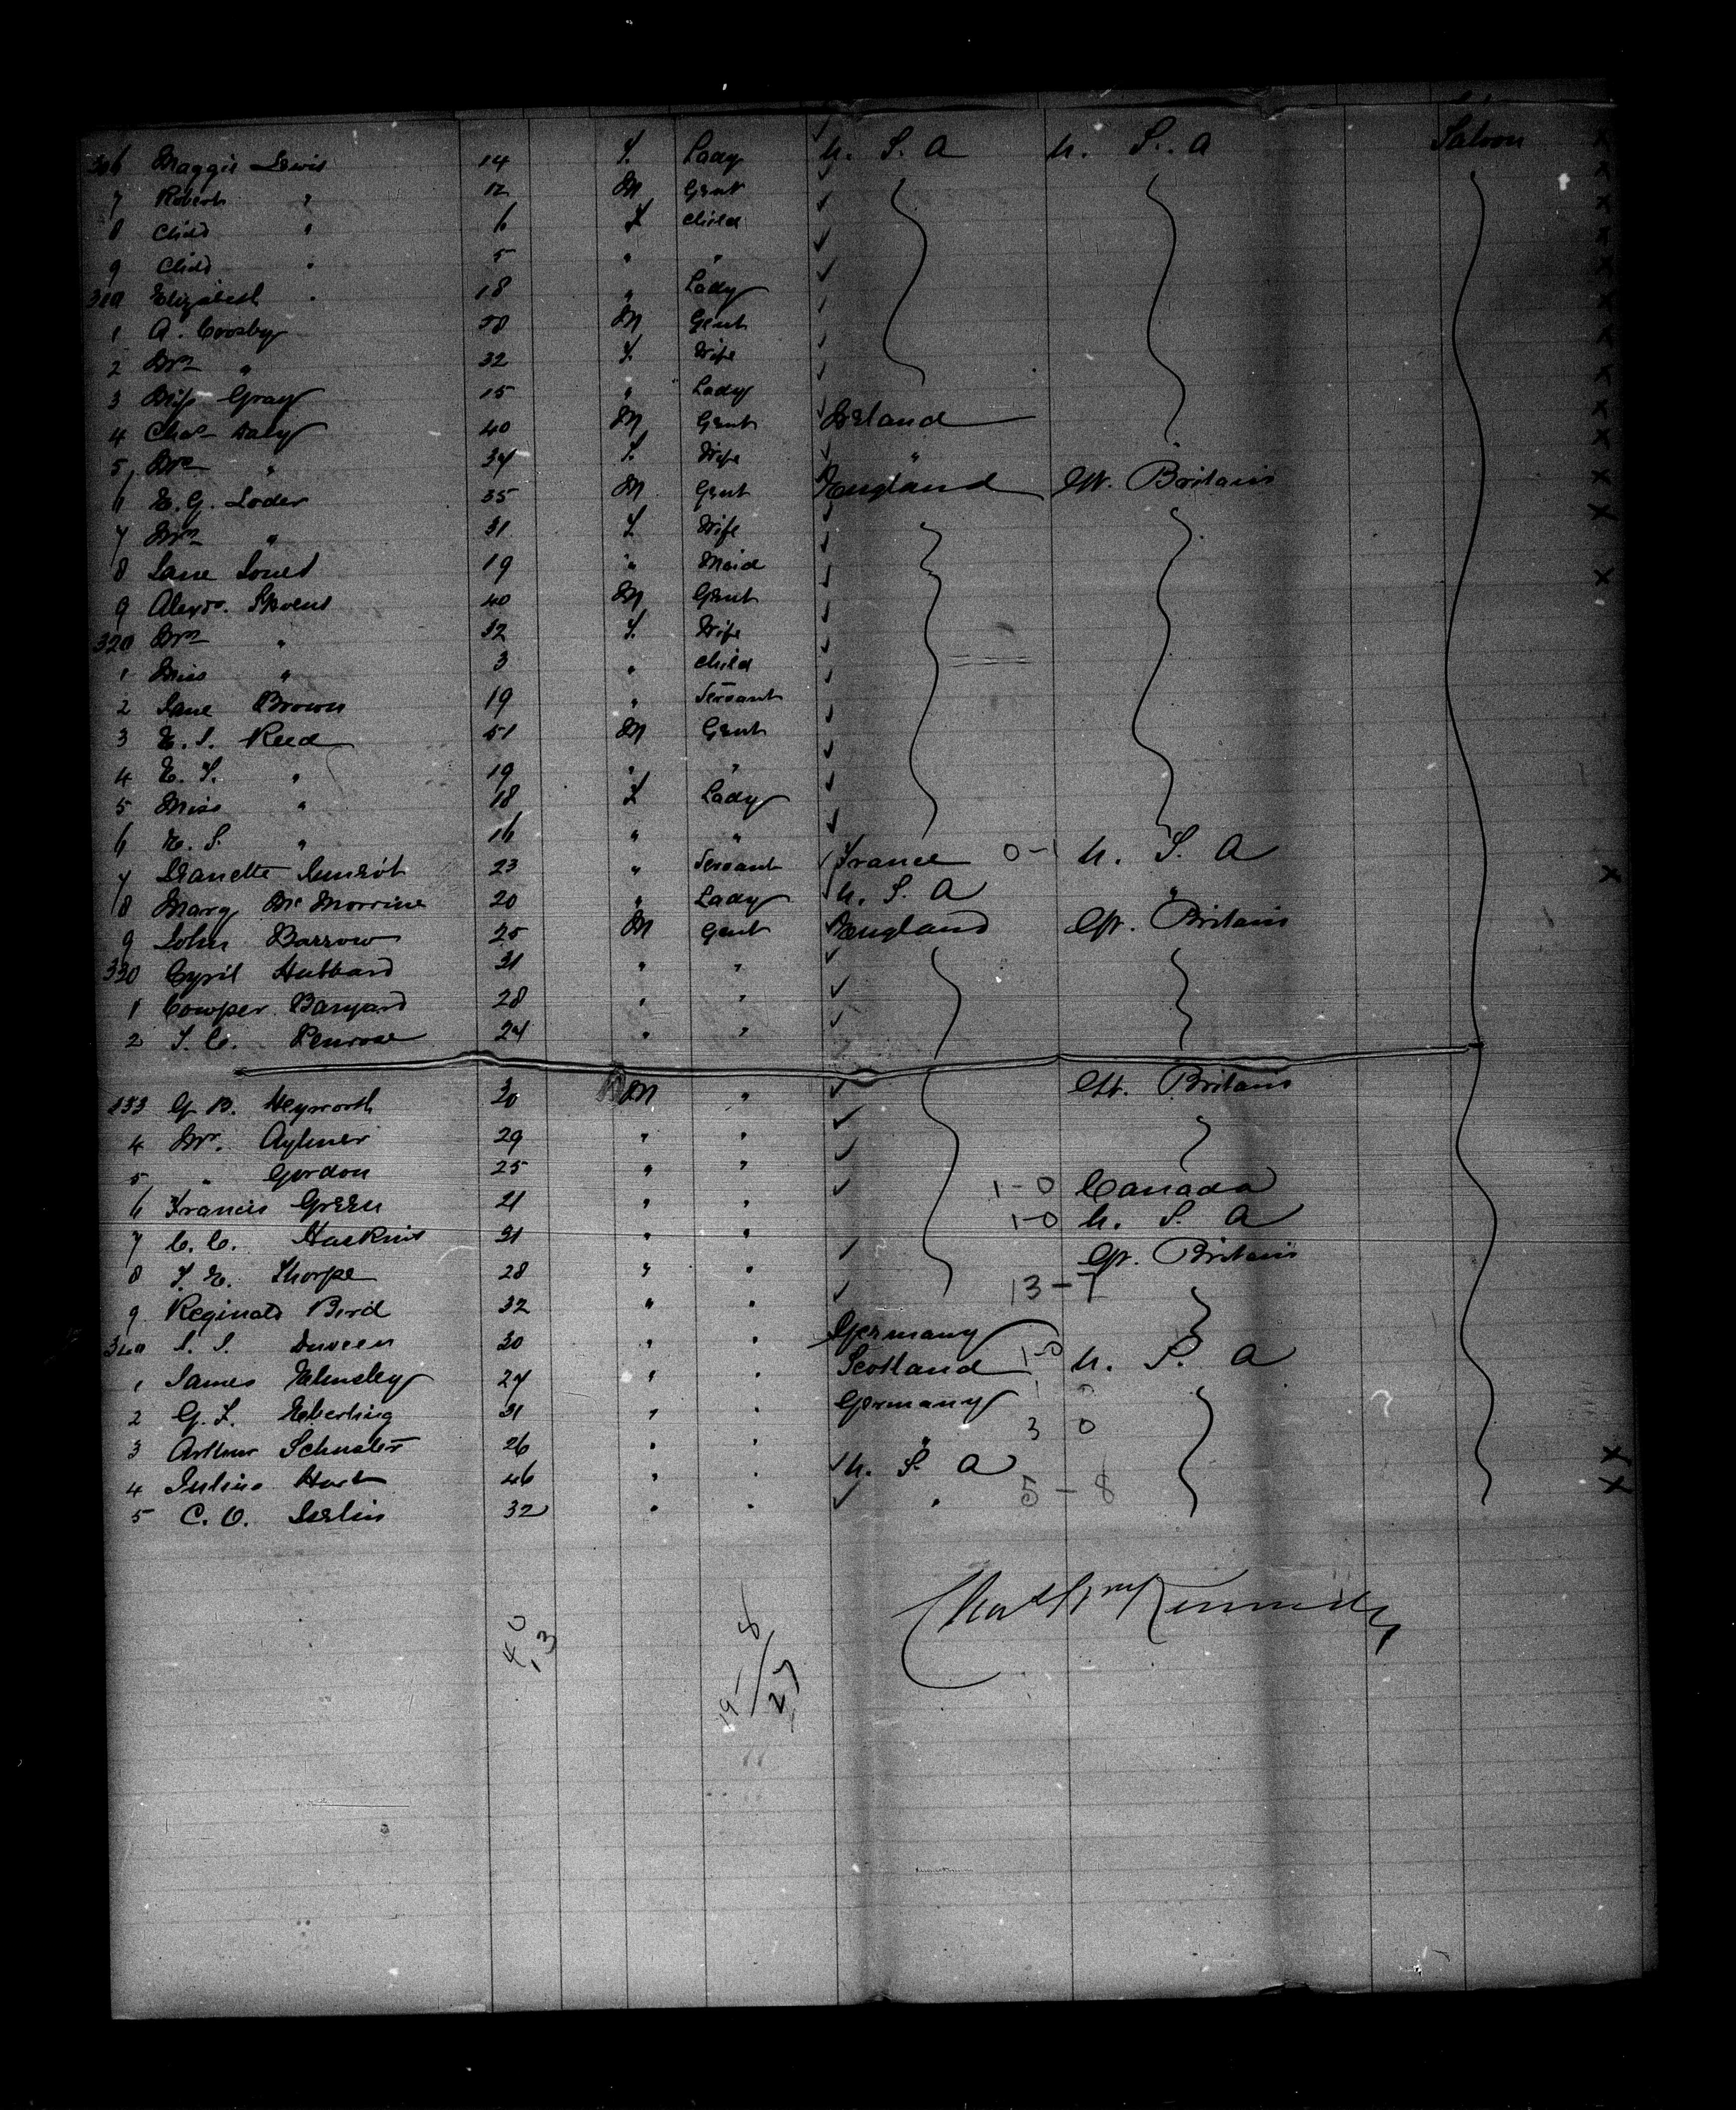 306 Maggie Lewis 14 F. Lady U. S. A U. S. A Saloon X
7 Robert " 12 M Gent X
8 Child " 6 F Child X
9 Child " 5 " " X
310 Elizabeth " 18 " Lady X
1 A. Crosby 58 M Gent X
2 Mrs " 32 F. Wife X
3 Miss Gray 15 " Lady X
4 Chas Daly 40 M Gent Ireland X
5 Mrs " 34 F. Wife " " X
6 E. G. Loder 35 M Gent England Gt. Britain X
7 Mrs " 31 F Wife X
8 Jane Jones 19 " Maid
9 Alexr. Stevens 40 M Gent X
320 Mrs " 32 F. Wife
1 Miss " 3 " Child
2 Jane Brown 19 " Servant
3 E. J. Reed 51 M Gent
4 E. T. " 19 " "
5 Miss " 18 F Lady
6 E. S. " 16 " "
7 23 " Servant France 0-1 U. S. A
8 Mary Mc 20 " Lady U. S. A " X
9 John Barrow 25 M Gent England Gt. Britain
330 Cyril Hubbard 31 " "
1 Cowper 28 " "
2 J. C. Penrose 24 " "
333 G. B. Heyworth 30 M " Gt. Britain
4 Mr. Aylmer 29 " "
5 " Gordon 25 " "
6 Francis Green 21 " " 1-0 Canada
7 C. C. Haskins 31 " " 1-0 U. S. A
8 T. E. Thorpe 28 " " Gt. Britain
9 Reginald Bird 32 " " 13-7
340 J. J. Duveen 30 " " Germany
1 James 24 " " Scotland 1-0 U. S. A
2 G. F. Eberling 31 " " Germany 1 0
3 Arthur 26 " " " 3 0
4 Julius Hart 46 " " U. S. A X
5 C. O. Iselin 32 " " " 5-8 X
Kennedy